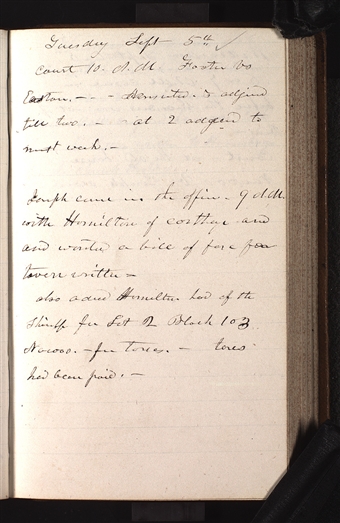 Tuesday Sept 5th ✓
Court 10. A.M. Foster vs
Easton. - - - & adjnd
till two. - at 2 adjnd to
next week. -
Joseph came in the office - 9 A.M.
with Hamilton of Carthage and
and wanted a bill of fare for
tavern written -
also deed Hamilton had of the
Sheriff for Lot 2 Block 103
Nauvoo. - for taxes. - taxes
had been paid. -